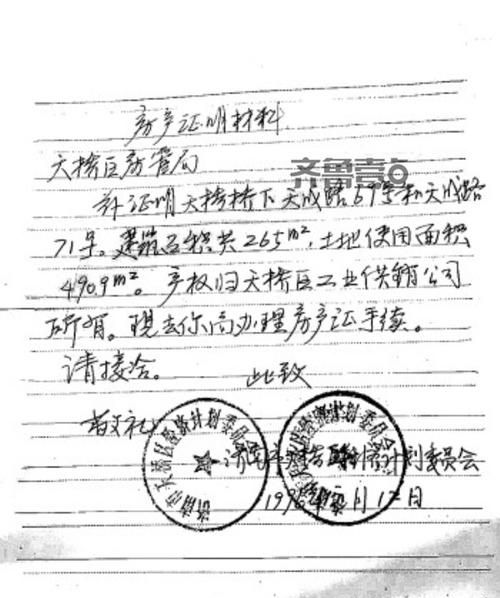 房产证明材料
天桥区房管局
齐鲁壹点
兹证明天桥桥下天成路69号和天成路
71号。建筑面积共265m²，土地使用面积
490.9m²。产权归天桥区工业供销公司
所有。现去你局办理房产证手续。
请接洽。
此致
敬礼
济南市天桥区经济计划委员会
月12日